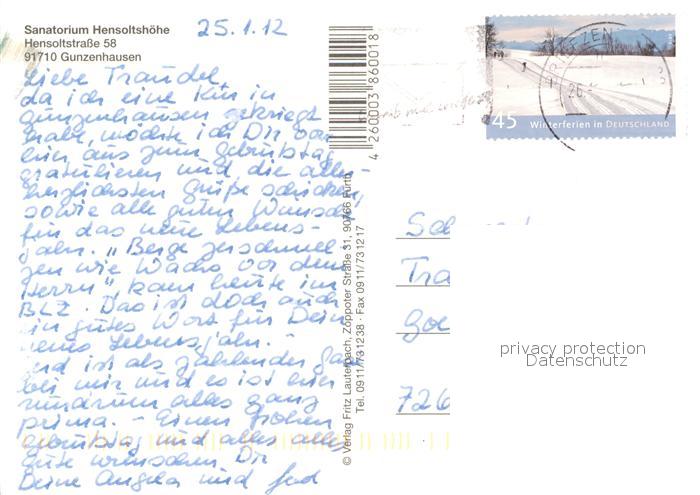 Sanatorium Hensoltshöhe
Hensoltstraße 58
91710 Gunzenhausen
25.1.12
Liebe Traudel,
da ich eine Kur in
Gunzenhausen gekriegt
habe, möchte ich Dir von
hier aus zum Geburtstag
gratulieren und die aller-
herzlichsten Grüße schicken,
sowie alle guten Wünsche
für das neue Lebens-
jahr. "Berge zerschmel-
zen wie Wachs vor dem
Herrn", kam heute im
BLZ. Das ist doch auch
ein gutes Wort für Dein
neues Lebensjahr. -
ist als zahlender Gast
bei mir und es ist hier
rundrum alles ganz
prima. - Einen frohen
Geburtstag und alles alles
Gute wünschen Dir
Deine Angela und
4 260003 860018
© Verlag Fritz Lauterbach, Zoppoter Straße 31, 90766 Fürth
Tel. 0911/731238 · Fax 0911/731217
45 Winterferien in DEUTSCHLAND
Tra
726
privacy protection
Datenschutz